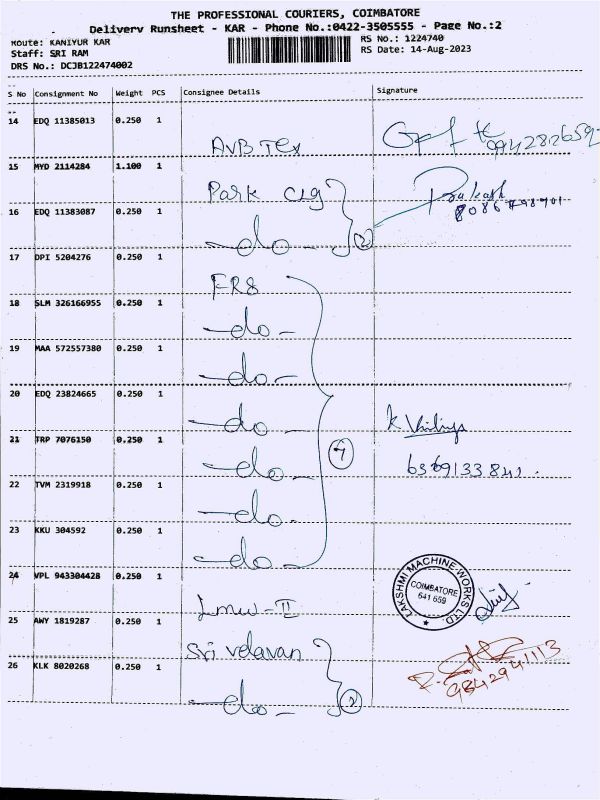 THE PROFESSIONAL COURIERS, COIMBATORE
Delivery Runsheet - KAR - Phone No.:0422-3505555 - Page No.:2
Route: KANIYUR KAR
RS No.: 1224740
Staff: SRI RAM
RS Date: 14-Aug-2023
DRS No.: DCJB122474002
S No Consignment No Weight PCS Consignee Details Signature
14 EDQ 11385013 0.250 1
AVB Tex
15 MYD 2114284 1.100 1
Park clg
Prakash
16 EDQ 11383087 0.250 1
-do- 2
17 DPI 5204276 0.250 1
FR8
18 SLM 326166955 0.250 1
-do-
19 MAA 572557380 0.250 1
-do-
20 EDQ 23824665 0.250 1
-do-
21 TRP 7076150 0.250 1
-do- 7
22 TVM 2319918 0.250 1
-do-
23 KKU 304592 0.250 1
-do-
24 VPL 943304428 0.250 1
LAKSHMI MACHINE WORKS LTD.
COIMBATORE
641 659
Lmw-II
25 AWY 1819287 0.250 1
Sri velavan
26 KLK 8020268 0.250 1
9842941113
-do- 2